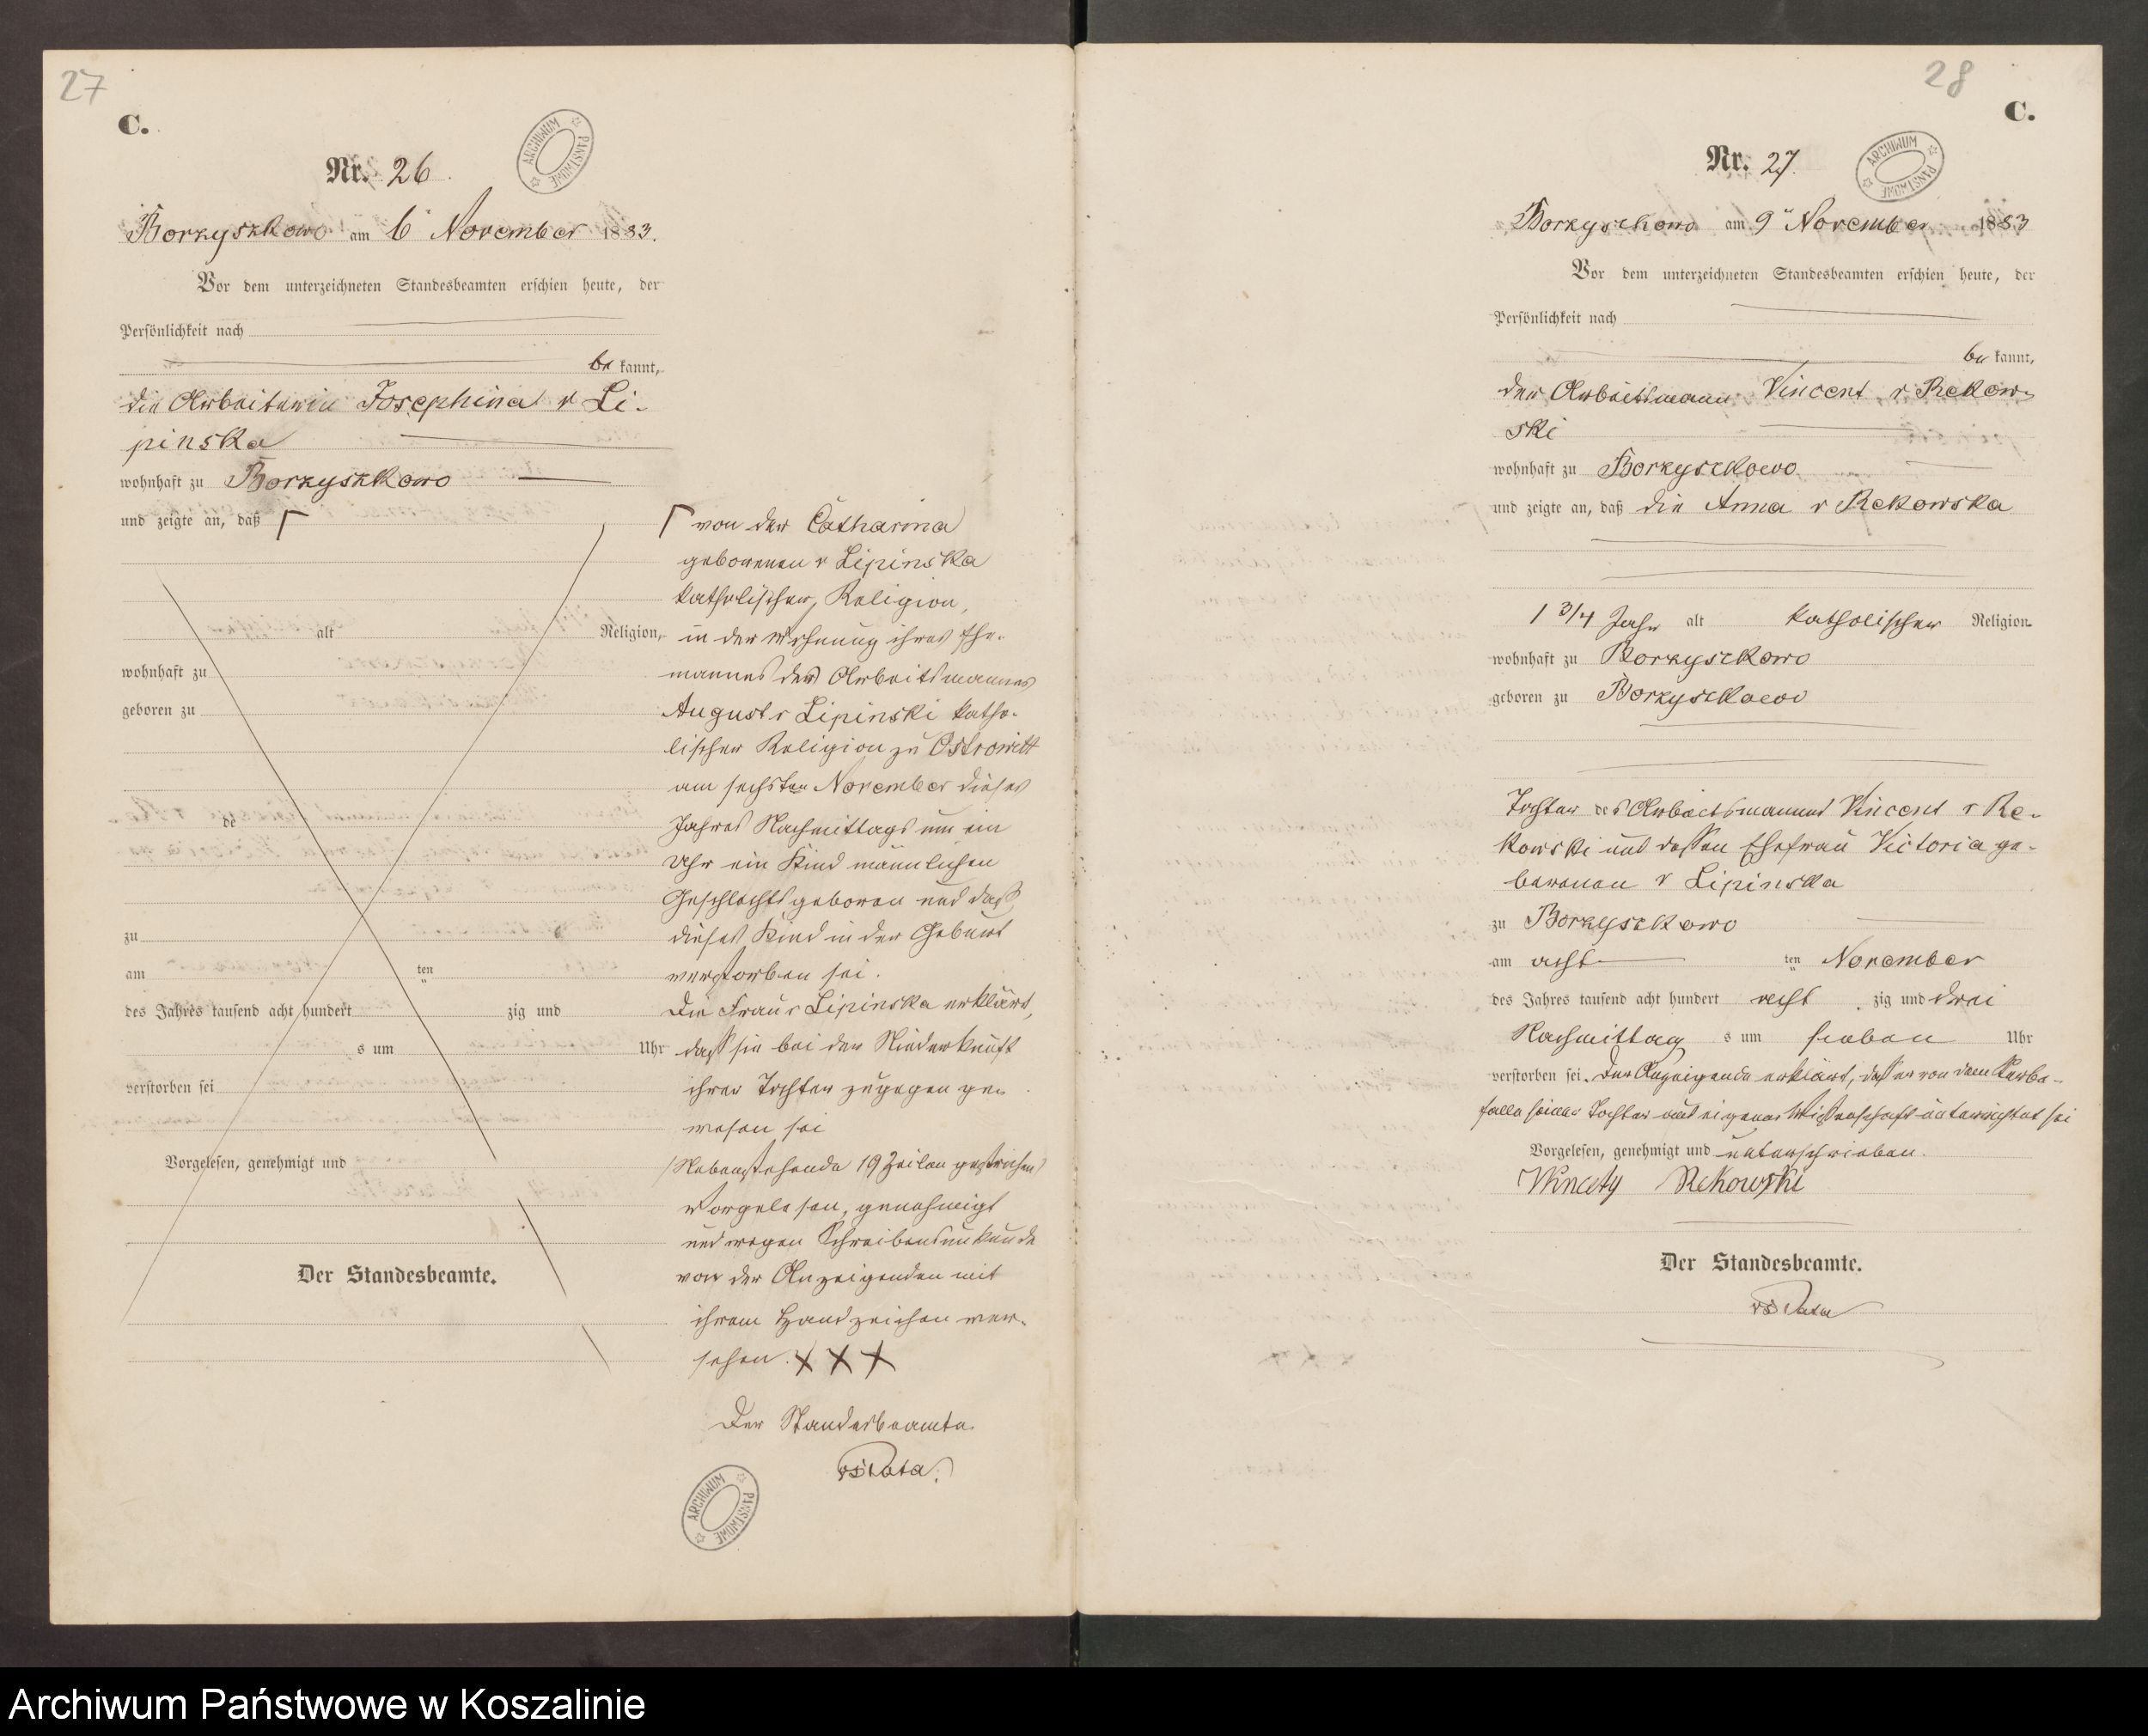 27
C.
ARCHIWUM PAŃSTWOWE
Nr. 26.
Borzyszkowo am 6 November 1883.
Vor dem unterzeichneten Standesbeamten erschien heute, der
Persönlichkeit nach
be kannt,
die Arbeiterin Josephina v Li-
pinska
wohnhaft zu Borzyszkowo
und zeigte an, daß ┌
alt Religion,
wohnhaft zu
geboren zu
de
zu
am ten
des Jahres tausend acht hundert zig und
s um Uhr
verstorben sei
Vorgelesen, genehmigt und
Der Standesbeamte.
┌ von der Catharina
geborenen v Lipinska
katholischer Religion,
in der Wohnung ihres Ehe-
mannes des Arbeitsmannes
August v Lipinski katho-
lischer Religion zu Ostrowitt
am sechsten November dieses
Jahres Nachmittags um ein
Uhr ein Kind männlichen
Geschlechts geboren und daß
dieses Kind in der Geburt
verstorben sei.
Die Frau v Lipinska erklärt,
daß sie bei der Niederkunft
ihrer Tochter zugegen ge-
wesen sei
/Nebenstehende 19 Zeilen gestrichen/
Vorgelesen, genehmigt
und wegen Schreibensunkunde
von der Anzeigenden mit
ihrem Handzeichen ver-
sehen. XXX
Der Standesbeamte.
ARCHIWUM PAŃSTWOWE
28
C.
ARCHIWUM PAŃSTWOWE
Nr. 27.
Borzyszkowo am 9ten November 1883
Vor dem unterzeichneten Standesbeamten erschien heute, der
Persönlichkeit nach
be kannt,
der Arbeitsmann Vincent v Rekow-
ski
wohnhaft zu Borzyszkowo
und zeigte an, daß die Anna v Rekowska
1 3/4 Jahr alt katholischer Religion
wohnhaft zu Borzyszkowo
geboren zu Borzyszkowo
Tochter des Arbeitsmannes Vincent v Re-
kowski und dessen Ehefrau Victoria ge-
borenen v Lipinska
zu Borzyszkowo
am acht ten November
des Jahres tausend acht hundert acht zig und drei
Nachmittag s um sieben Uhr
verstorben sei. Der Anzeigende erklärt, daß er von dem Sterbe-
falle seiner Tochter aus eigener Wissenschaft unterrichtet sei
Vorgelesen, genehmigt und unterschrieben.
Wincenty Rekowski
Der Standesbeamte.
Archiwum Państwowe w Koszalinie